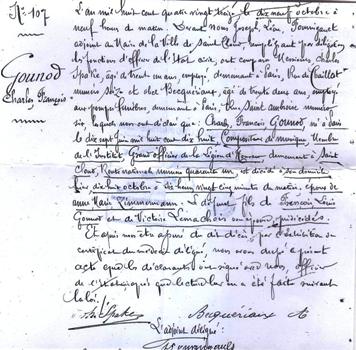 N° 107
Gounod
Charles François
L'an mil huit cent quatre vingt treize le dix neuf octobre à
neuf heures du matin. Devant nous Joseph, Léon,
adjoint au Maire de la Ville de Saint Cloud, remplissant par délégation
les fonctions d'officier de l'Etat civil, ont comparu Messieurs Charles
âgé de trente un ans, employé, demeurant à Paris, Rue de Chaillot
numéro seize et âgé de trente deux ans, employé
aux pompes funèbres, demeurant à Paris, Rue Saint Ambroise numéro
six, lesquels nous ont déclaré que : Charles François Gounod, né à Paris
le dix sept juin mil huit cent dix huit, Compositeur de musique, Membre
de l'Institut, Grand officier de la Légion d'Honneur demeurant à Saint
Cloud, Route numéro quarante un est décédé à son domicile
hier dix huit octobre à six heures vingt cinq du matin, époux de
Anne Marie Zimmermann. Le défunt fils de François Louis
Gounod et de Victoire Lemachois son épouse, prédécédés.
Et après nous être assuré du dit décès, par l'exhibition du
certificat du médecin délégué, nous avons dressé le présent
acte que les déclarants ont signé avec nous, officier
de l'Etat civil après que lecture leur en a été faite suivant
la loi.
L'adjoint délégué :